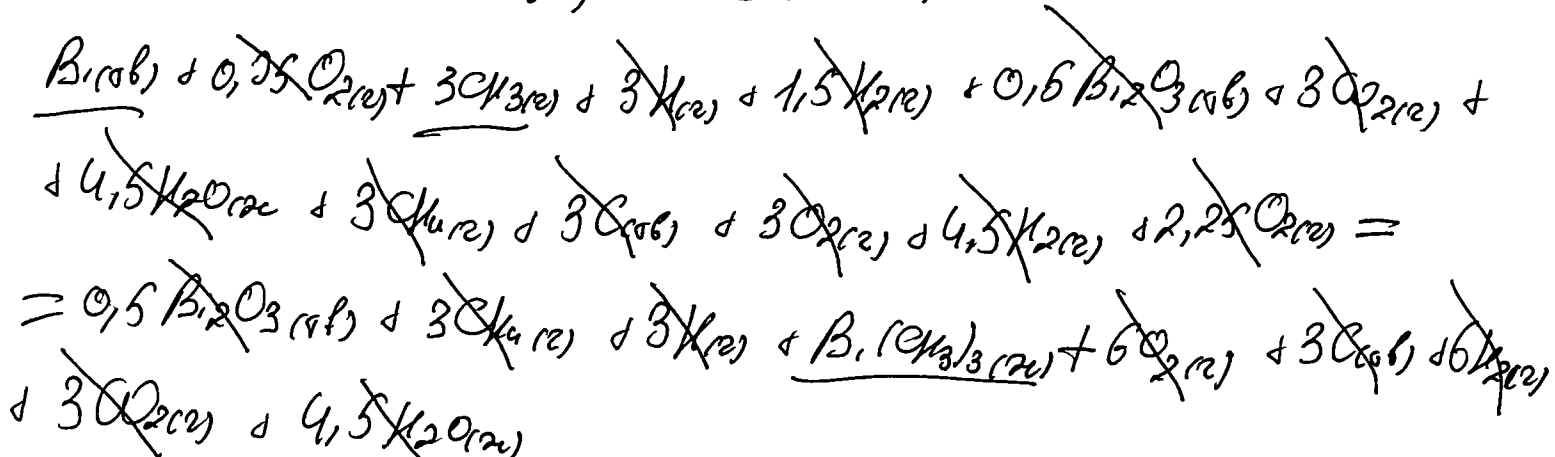 Bi(тв) + 0,75O₂(г) + 3CH₃(г) + 3H(г) + 1,5H₂(г) + 0,5Bi₂O₃(тв) + 3CO₂(г) +
+ 4,5H₂O(ж + 3CH₄(г) + 3C(тв) + 3O₂(г) + 4,5H₂(г) + 2,25O₂(г) =
= 0,5Bi₂O₃(тв) + 3CH₄(г) + 3H(г) + Bi(CH₃)₃(ж) + 6O₂(г) + 3C(тв) + 6H₂(г)
+ 3CO₂(г) + 4,5H₂O(ж)